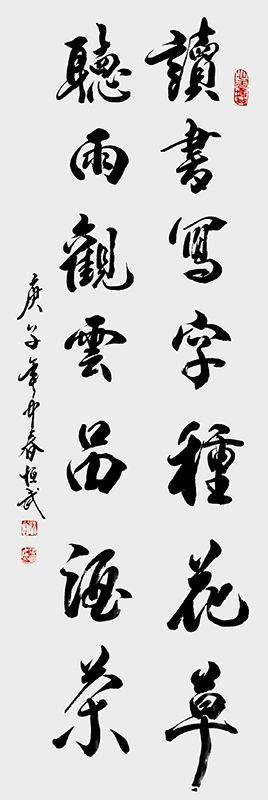 讀書寫字種花草
聽雨觀雲品酒茶
庚子年中春恒武